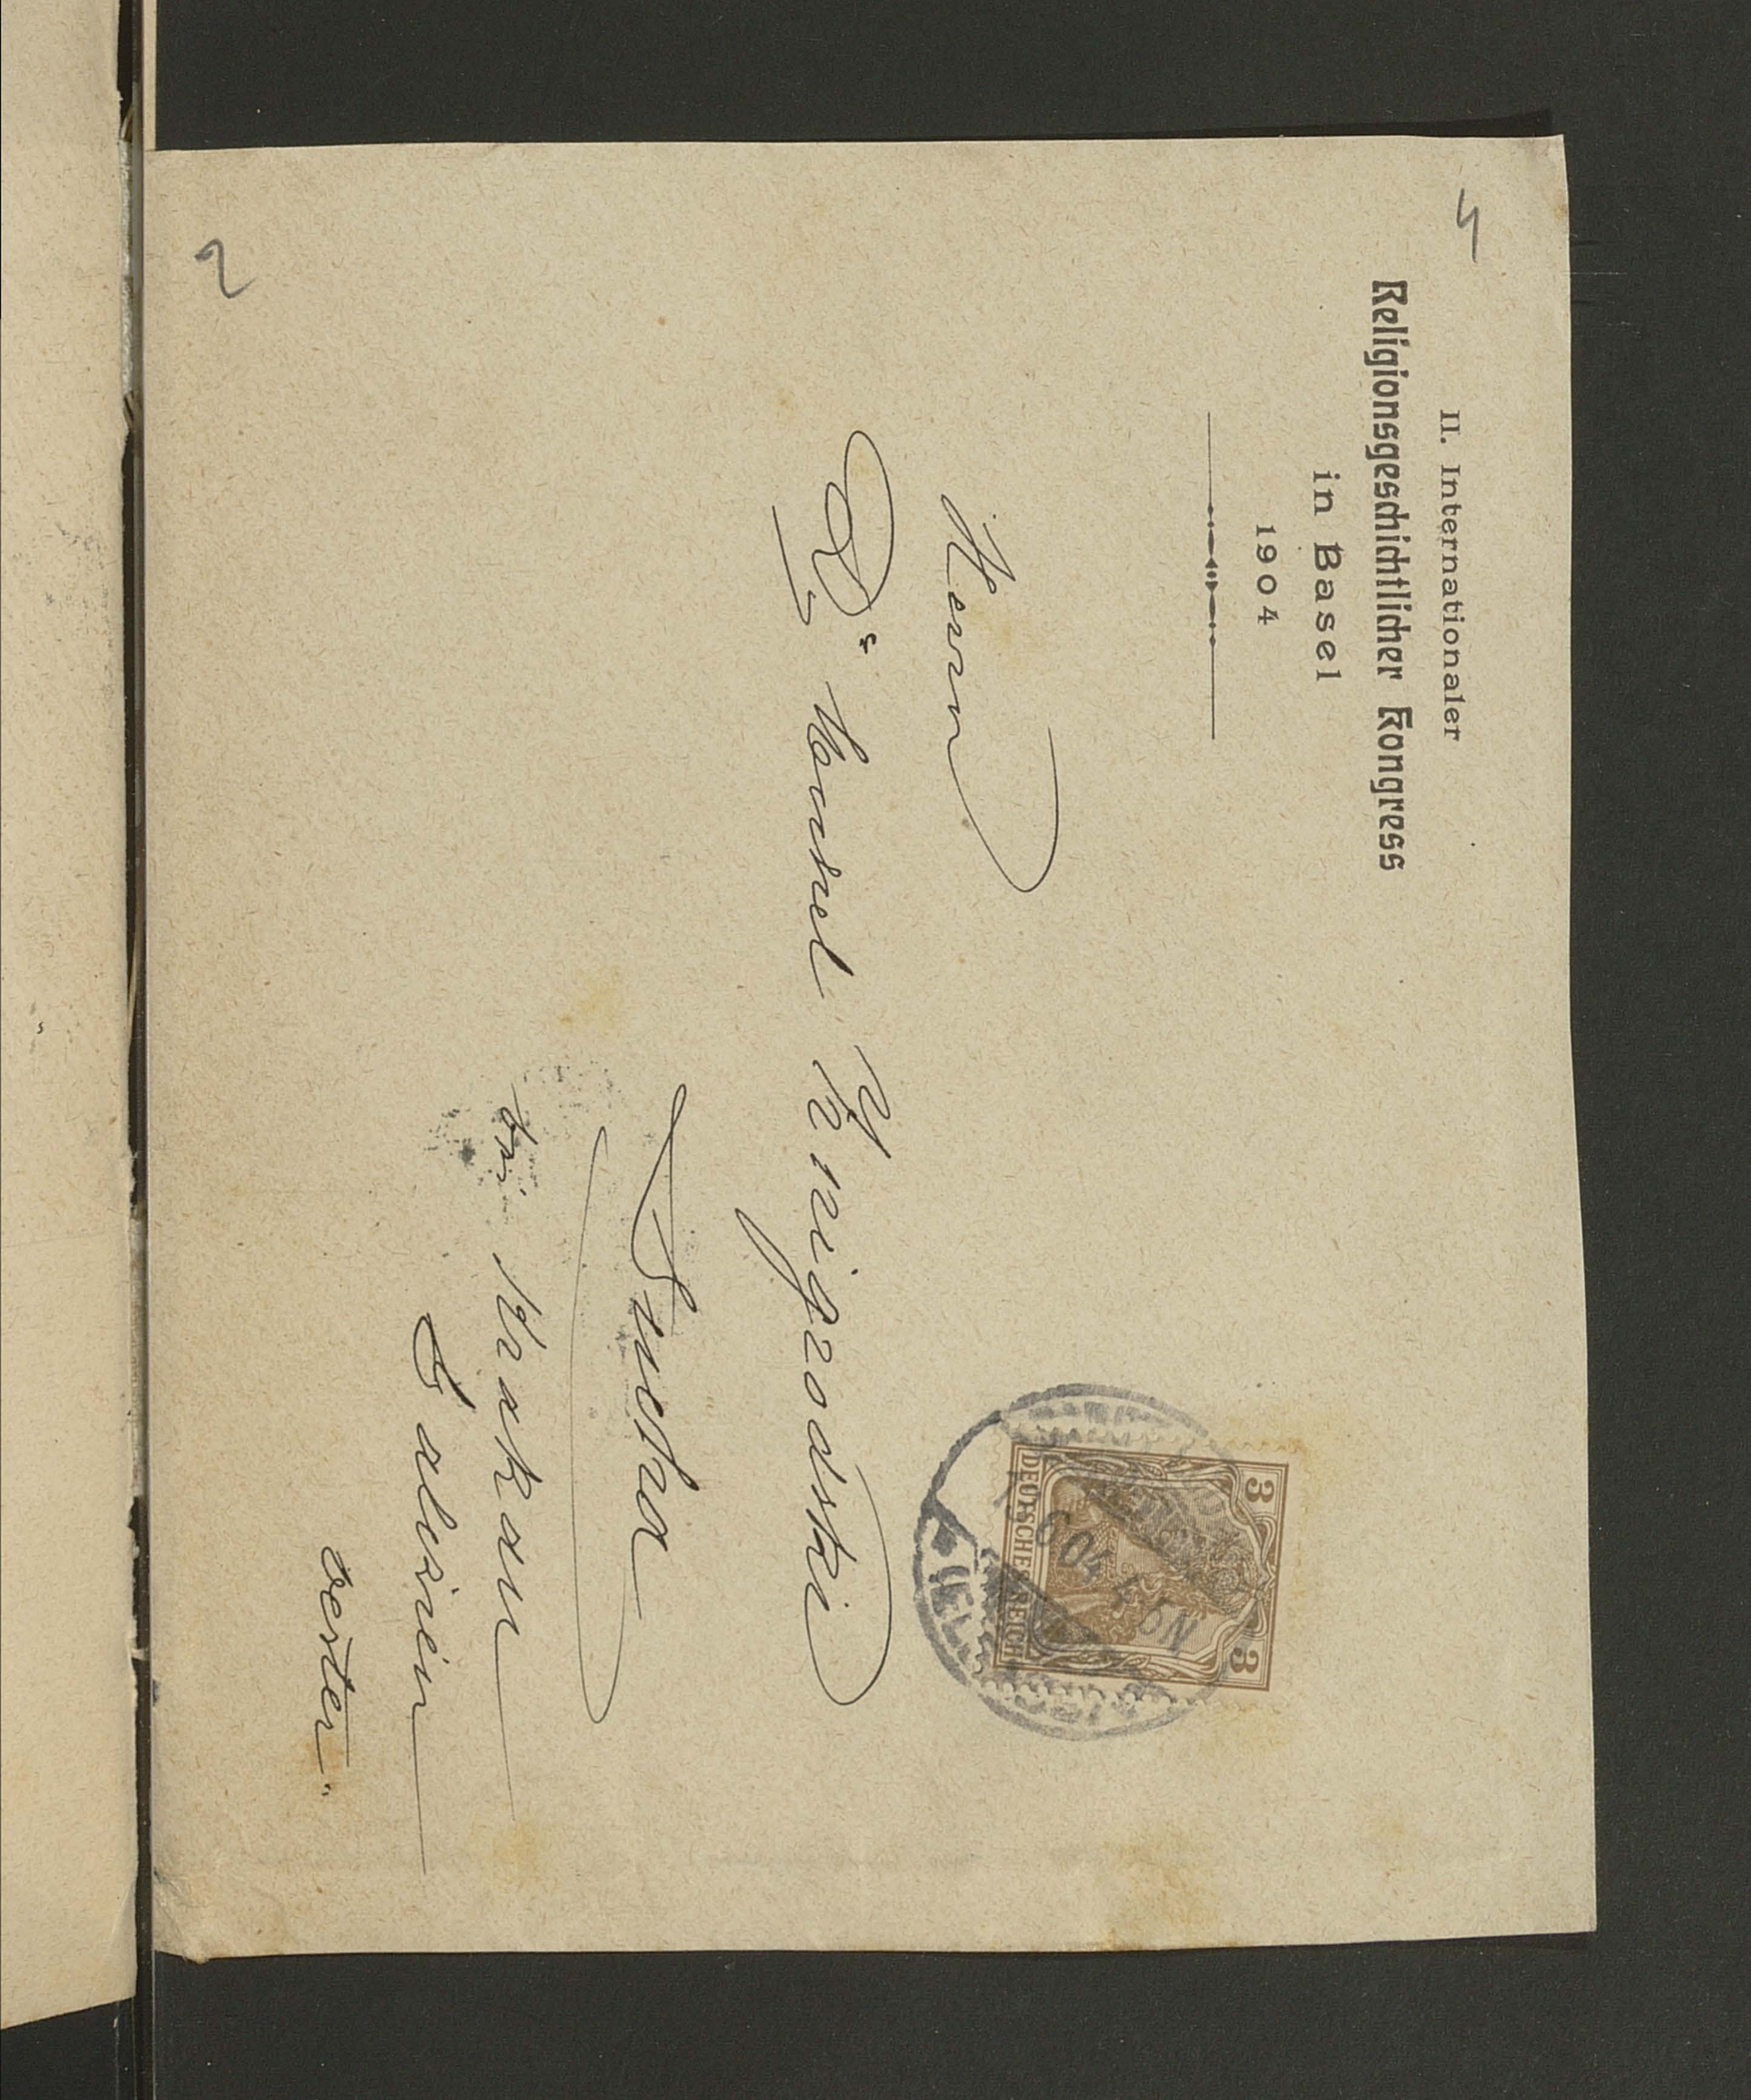 4
II. Internationaler
Religionsgeschichtlicher Kongress
in Basel
1904
3 3
DEUTSCHES REICH
5 N
Herrn
Dr. Konrad Zmigrodzki
Sucha
bei Krakau
Galizien
Oester.
2